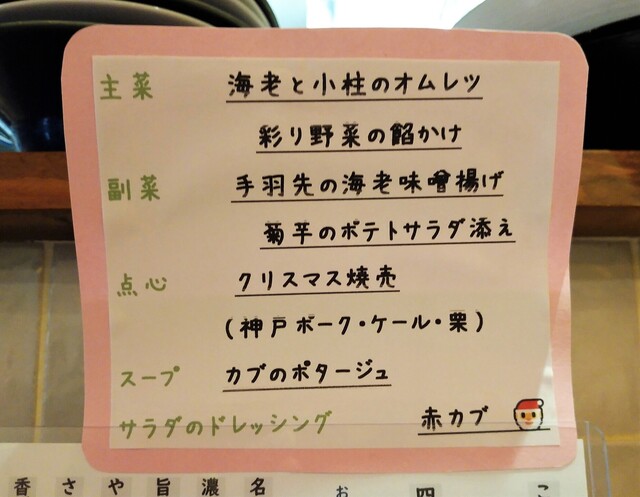 主菜 海老と小柱のオムレツ
彩り野菜の餡かけ
副菜 手羽先の海老味噌揚げ
菊芋のポテトサラダ添え
点心 クリスマス焼売
(神戸ポーク・ケール・栗)
スープ カブのポタージュ
サラダのドレッシング 赤カブ
香 さ や 旨 濃 名 お 四 こ